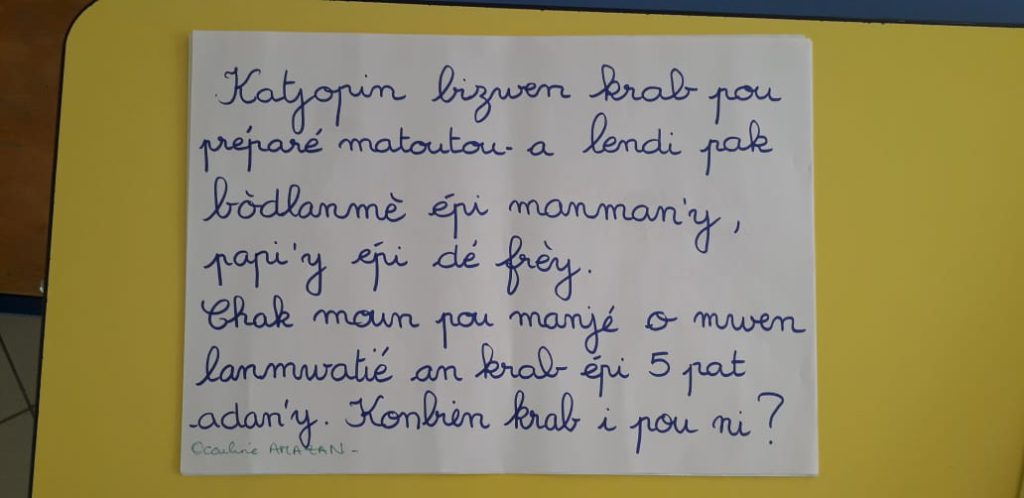 Katjopin bizwen krab pou
préparé matoutou-a lendi pak
bòdlanmè épi manman'y,
papi'y épi dé frèy.
Chak moun pou manjé o mwen
lanmwatié an krab épi 5 pat
adan'y. Konbién krab i pou ni?